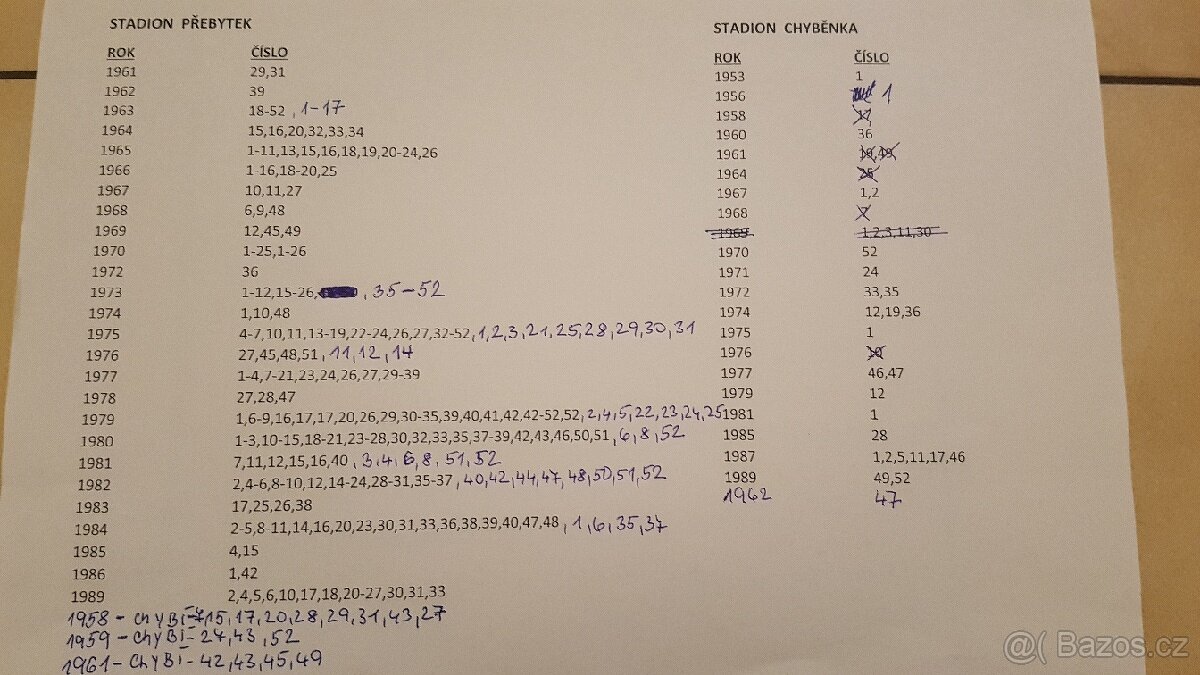 STADION PŘEBYTEK
ROK ČÍSLO
1961 29,31
1962 39
1963 18-52 , 1-17
1964 15,16,20,32,33,34
1965 1-11,13,15,16,18,19,20-24,26
1966 1-16,18-20,25
1967 10,11,27
1968 6,9,48
1969 12,45,49
1970 1-25,1-26
1972 36
1973 1-12,15-26, , 35-52
1974 1,10,48
1975 4-7,10,11,13-19,22-24,26,27,32-52,1,2,3,21,25,28,29,30,31
1976 27,45,48,51,11,12,14
1977 1-4,7-21,23,24,26,27,29-39
1978 27,28,47
1979 1,6-9,16,17,17,20,26,29,30-35,39,40,41,42,42-52,52,2,4,5,22,23,24,25
1980 1-3,10-15,18-21,23-28,30,32,33,35,37-39,42,43,46,50,51,6,8,52
1981 7,11,12,15,16,40,3,4,6,8,51,52
1982 2,4-6,8-10,12,14-24,28-31,35-37,40,42,44,47,48,50,51,52
1983 17,25,26,38
1984 2-5,8-11,14,16,20,23,30,31,33,36,38,39,40,47,48,1,6,35,37
1985 4,15
1986 1,42
1989 2,4,5,6,10,17,18,20-27,30,31,33
1958 - CHYBÍ- 15,17,20,28,29,31,43,27
1959 - CHYBÍ- 24,43,52
1961 - CHYBÍ - 42,43,45,49
STADION CHYBĚNKA
ROK ČÍSLO
1953 1
1956 1
1958 17
1960 36
1961 19,49
1964 25
1967 1,2
1968 7
1969 1,2,3,11,30
1970 52
1971 24
1972 33,35
1974 12,19,36
1975 1
1976
1977 46,47
1979 12
1981 1
1985 28
1987 1,2,5,11,17,46
1989 49,52
1962 47
@( Bazos.cz